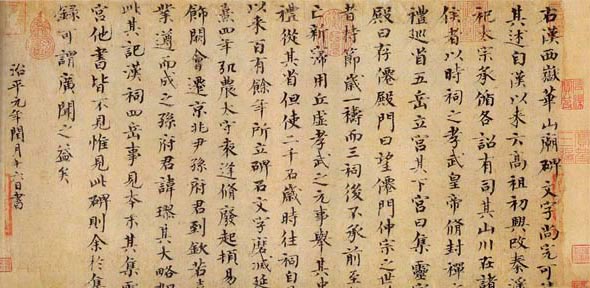 右漢西嶽華山廟碑文字尚完可
其述自漢以來云高祖初興改秦淫
祀太宗承循各詔有司其山川在諸
侯者以時祠之孝武皇帝脩封禪
禮巡省五岳立宮其下宮曰集靈
殿曰存僊殿門曰望僊門仲宗之世
者持節歲一禱而三祠後不承前至
亡新寖用丘虛孝武之元事舉其中
禮從其省但使二千石歲時往祠自
以來百有餘年所立碑石文字磨滅延
熹四年弘農太守袁逢脩廢起頓易
飾闕會遷京兆尹孫府君到欽若
業遵而成之孫府君諱璆其大略如
此其記漢祠四岳事見本末其集靈
宮他書皆不見惟見此碑則余於集
錄可謂廣聞之益矣
治平元年閏月十六日書